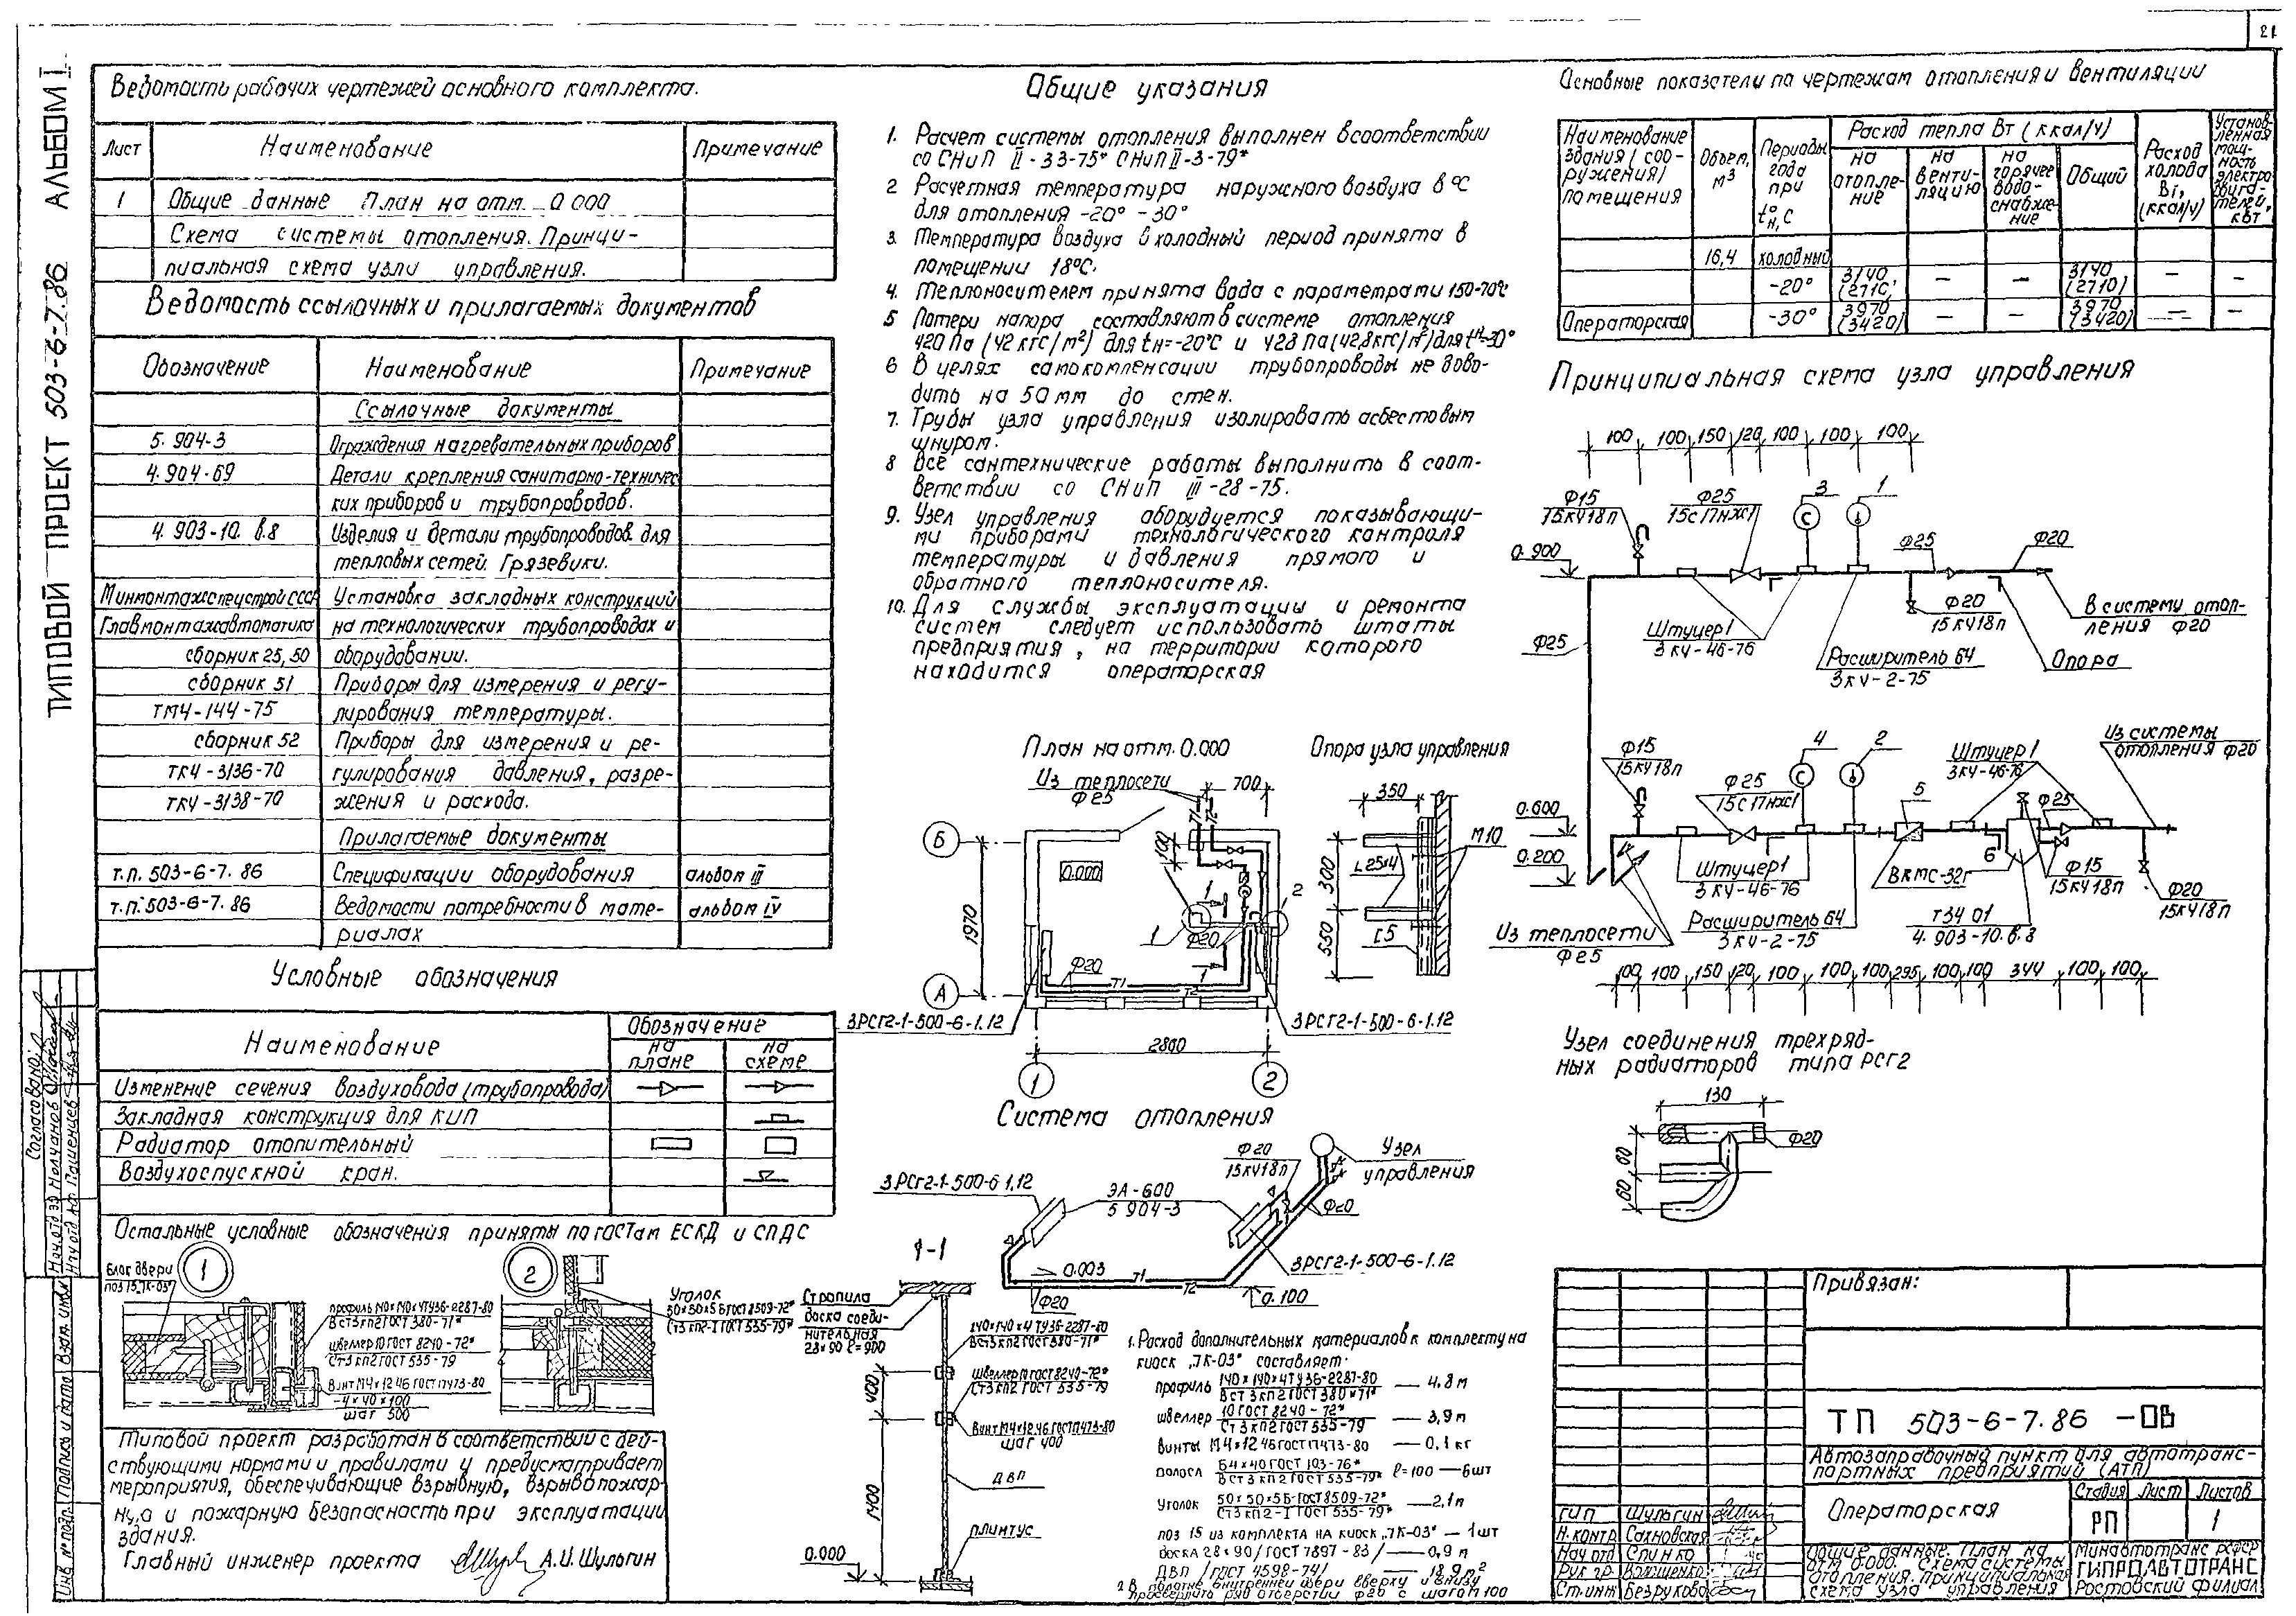 21
ТИПОВОЙ ПРОЕКТ 503-6-7.86 АЛЬБОМ I
Ведомость рабочих чертежей основного комплекта.
Лист Наименование Примечание
1 Общие данные План на отм. 0.000
Схема системы отопления. Принци-
пиальная схема узла управления.
Ведомость ссылочных и прилагаемых документов
Обозначение Наименование Примечание
Ссылочные документы
5.904-3 Ограждения нагревательных приборов
4.904-69 Детали крепления санитарно-техничес
ких приборов и трубопроводов.
4.903-10. в.8 Изделия и детали трубопроводов для
тепловых сетей. Грязевики.
Минмонтажспецстрой СССР Установка закладных конструкций
Главмонтажавтоматика на технологических трубопроводах и
сборник 25,50 оборудовании.
сборник 51 Приборы для измерения и регу-
ТМ4-144-75 лирования температуры.
сборник 52 Приборы для измерения и ре-
ТК4-3136-70 гулирования давления, разре-
ТК4-3138-70 жения и расхода.
Прилагаемые документы
т.п. 503-6-7.86 Спецификации оборудования альбом III
т.п. 503-6-7.86 Ведомости потребности в мате- альбом IV
риалах
Условные обозначения
Наименование Обозначение
на плане на схеме
Изменение сечения воздуховода (трубопровода)
Закладная конструкция для КИП
Радиатор отопительный
Воздухоспускной кран.
Остальные условные обозначения приняты по ГОСТам ЕСКД и СПДС
1
Блок двери
поз 15 „7К-03"
профиль 140×140×4 ТУ36-2287-80
В ст3 кп2 ГОСТ 380-71*
швеллер 10 ГОСТ 8240-72*
Ст3 кп2 ГОСТ 535-79
Винт М4×12 46 ГОСТ 17473-80
-4×40×100
шаг 500
2
Уголок
50×50×5 Б ГОСТ 8509-72*
Ст3 кп2-I ГОСТ 535-79*
Типовой проект разработан в соответствии с дей-
ствующими нормами и правилами и предусматривает
мероприятия, обеспечивающие взрывную, взрывопожар-
ную и пожарную безопасность при эксплуатации
здания.
Главный инженер проекта А.И.Шульгин
Общие указания
1. Расчет системы отопления выполнен в соответствии
со СНиП II-33-75* СНиП II-3-79*
2 Расчетная температура наружного воздуха в °С
для отопления -20° -30°
3. Температура воздуха в холодный период принята в
помещении 18°С.
4. Теплоносителем принята вода с параметрами 150-70°С
5 Потери напора составляют в системе отопления
420 Па (42 кгс/м²) для tн=-20°С и 428 Па (42,8 кгс/м²) для tн=-30°
6 В целях самокомпенсации трубопроводы не дово-
дить на 50 мм до стен.
7. Трубы узла управления изолировать асбестовым
шнуром.
8 Все сантехнические работы выполнить в соот-
ветствии со СНиП III-28-75.
9. Узел управления оборудуется показывающи-
ми приборами технологического контроля
температуры и давления прямого и
обратного теплоносителя.
10. Для службы эксплуатации и ремонта
систем следует использовать штаты
предприятия, на территории которого
находится операторская
План на отм. 0.000
Из теплосети
Ф25
700
Т1 Т2
100
0.000
Б
А
1970
1
2
Ф20
Ф20
Т1 Т2
3РСГ2-1-500-6-1.12
3РСГ2-1-500-6-1.12
2800
1 2
Опора узла управления
350
М10
L25×4
300
550
[5
Система отопления
3РСГ2-1-500-6-1.12
Ф20
15кч18п
Узел
управления
ЭА-600
5.904-3
Ф20
3РСГ2-1-500-6-1.12
0.003
Т1 Т2
Ф20
0.100
1-1
Стропила
доска соеди-
нительная
28×90 ℓ=900
140×140×4 ТУ36-2287-80
Вст3 кп2 ГОСТ 380-71*
швеллер 10 ГОСТ 8240-72*
Ст3 кп2 ГОСТ 535-79
Винт М4×12 46 ГОСТ 17473-80
шаг 400
ДВП
плинтус
400
1400
0.000
1. Расход дополнительных материалов к комплекту на
киоск „7К-03" составляет:
профиль 140×140×4 ТУ36-2287-80 — 4.8 м
В ст 3 кп2 ГОСТ 380-71*
швеллер 10 ГОСТ 8240-72* — 3,9 м
Ст 3 кп2 ГОСТ 535-79
винты М4×12 46 ГОСТ 17473-80 — 0,1 кг
полоса Б4×40 ГОСТ 103-76* ℓ=100 — 6 шт
В ст 3 кп2 ГОСТ 535-79*
Уголок 50×50×5 Б ГОСТ 8509-72* — 2,1 м
Ст 3 кп2-I ГОСТ 535-79*
поз 15 из комплекта на киоск „7К-03" — 1 шт
доска 28×90 /ГОСТ 7897-83/ — 0,9 м
ДВП /ГОСТ 4598-74/
2. В полотне внутренней двери вверху и внизу
просверлить ряд отверстий Ф20 с шагом 100
Основные показатели по чертежам отопления и вентиляции
Наименование здания (сооружения) помещения
Объем, м³
Периоды года при tн, °С
Расход тепла Вт (ккал/ч)
на отопление
на вентиляцию
на горячее водоснабжение
Общий
Расход холода Вт, (ккал/ч)
Установленная мощность электродвигателей, кВт
16,4 холодный
-20° 3140 (2710) — — 3140 (2710) — —
Операторская -30° 3970 (3420) — — 3970 (3420) — —
Принципиальная схема узла управления
100 100 150 120 100 100 100
Ф15
15кч18п
Ф25
15с17нж1
3 1
0.900
Ф25
Ф20
Ф20
15кч18п
В систему отоп-
ления Ф20
Штуцер 1
3 К4-46-76
Расширитель 64
3К4-2-75
Опора
Ф25
Ф15
15кч18п
4 2
Ф25
15с17нж1
Штуцер 1
3К4-46-76
Из системы
отопления Ф20
5
0.600
0.200
Ф25
6
Штуцер 1
3 К4-46-76
Расширитель 64
3К4-2-75
ВКМС-32г
Т34 01
4.903-10. в.8
Ф15
15кч18п
Ф20
15кч18п
Из теплосети
Ф25
100 100 150 120 100 100 100 295 100 100 344 100 100
Узел соединения трехряд-
ных радиаторов типа РСГ2
130
Ф20
60
60
Привязан:
ТП 503-6-7.86 -ОВ
Автозаправочный пункт для автотранс-
портных предприятий (АТП)
Операторская
Стадия Лист Листов
РП 1
ГИП Шульгин
Н.контр. Сахновская
Нач отд Спинко
Рук гр.
Ст.инж Безрукова
Общие данные. План на
отм. 0.000. Схема системы
отопления. Принципиальная
схема узла управления
Минавтотранс РСФСР
ГИПРОАВТОТРАНС
Ростовский филиал
Согласовано:
Инв. № подл. Подпись и дата Взам. инв.№